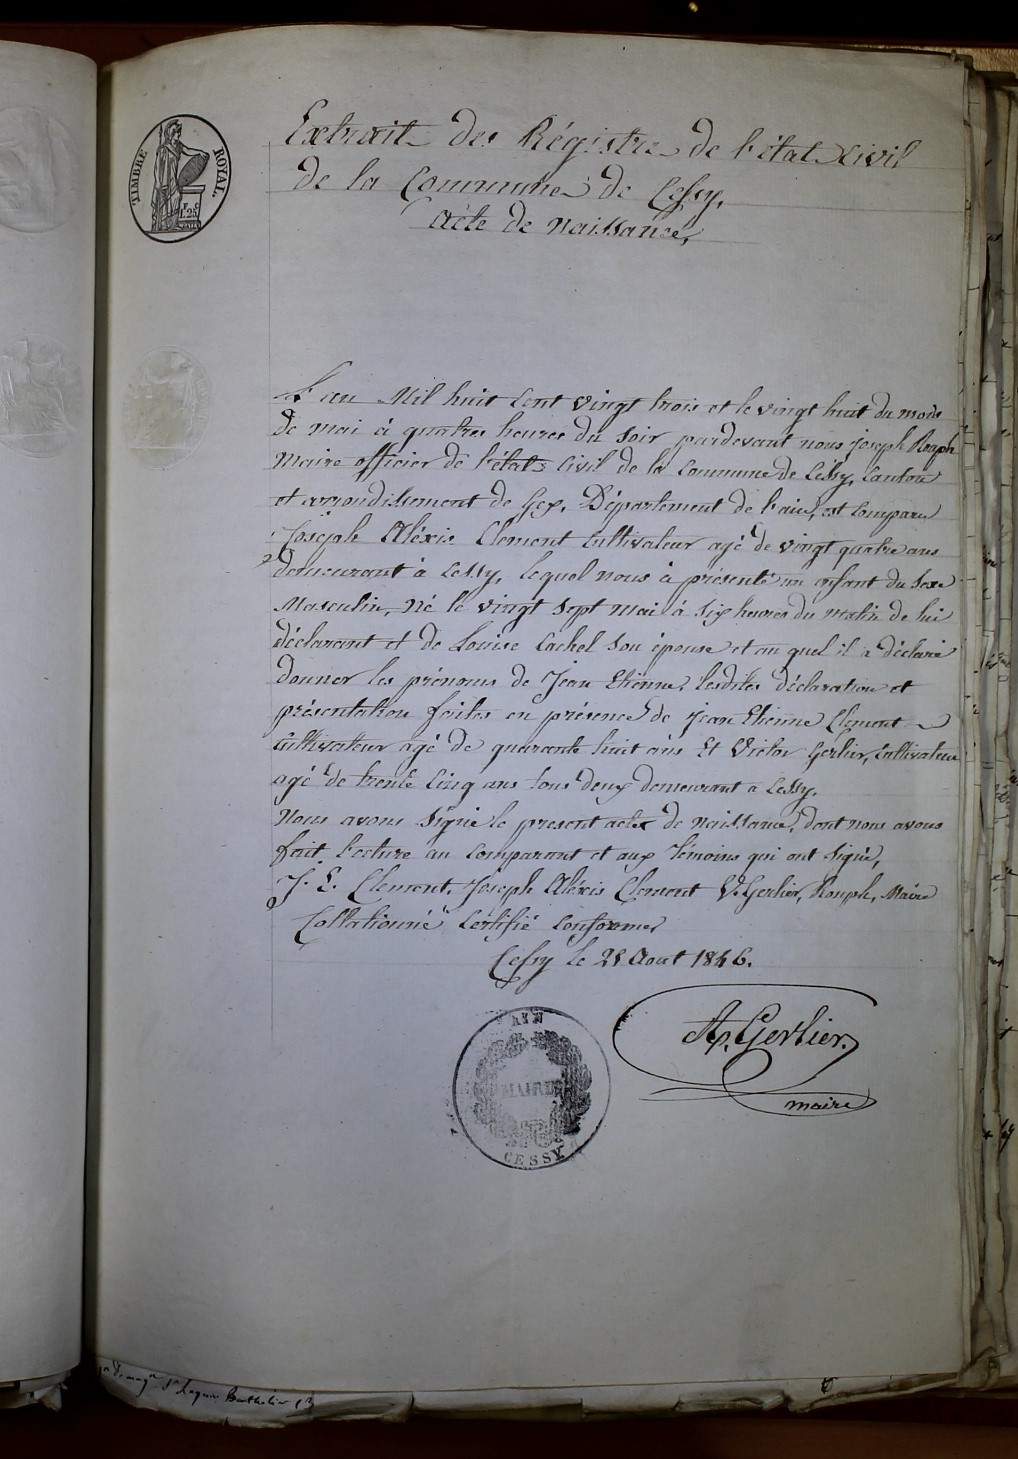 TIMBRE ROYAL.
Extrait des Régistre de l'état Civil
de la Commune de Cessy.
Acte de naissance,
L'an Mil huit Cent vingt trois et le vingt huit du mois
de mai à quatres heures du Soir pardevant nous joseph Rouph
Maire officier de l'état Civil de la Commune de Cessy, Canton
et arrondissement de Gex, Département de l'ain, est Comparu
Joseph Aléxis Clement Cultivateur agé de vingt quatre ans
demeurant à Cessy, lequel nous à présenté un enfant du Sexe
Masculin, né le vingt Sept mai à Six heures du matin de lui
déclarant et de Louise Cachel Son épouse et au quel il a déclaré
donner les prénoms de Jean Etienne, lesdites déclaration et
présentation faites en présence de jean Etienne Clement
Cultivateur agé de quarante huit ans Et Victor Gerlier, Cultivateur
agé de trente Cinq ans tous deux demeurant a Cessy.
Nous avons Signé le present acte de naissance, dont nous avons
fait lecture au Comparant et aux témoins qui ont Signé,
J. E. Clement, Joseph Aléxis Clement V. Gerlier, Rouph, Maire
Collationné Cértifié Conforme,
Cessy le 28 Aout 1846.
Ap. Gerlier.
maire
AIN
MAIRIE
CESSY